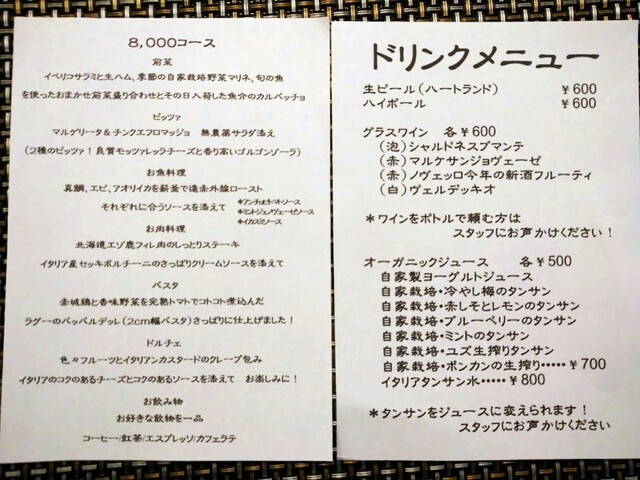 8,000コース
前菜
イベリコサラミと生ハム、季節の自家栽培野菜マリネ、旬の魚
を使ったおまかせ前菜盛り合わせとその日入荷した魚介のカルパッチョ
ピッツァ
マルゲリータ＆チンクエフロマッジョ　無農薬サラダ添え
（2種のピッツァ！良質モッツァレッラチーズと香り高いゴルゴンゾーラ）
お魚料理
真鯛、エビ、アオリイカを薪釜で遠赤外線ロースト
それぞれに合うソースを添えて
＊アンチョビトマトソース
＊ミントジェノヴェーゼソース
＊イカスミソース
お肉料理
北海道エゾ鹿フィレ肉のしっとりステーキ
イタリア産セッキポルチーニのさっぱりクリームソースを添えて
パスタ
赤城鶏と香味野菜を完熟トマトでコトコト煮込んだ
ラグーのパッパルデッレ（2cm幅パスタ）さっぱりに仕上げました！
ドルチェ
色々フルーツとイタリアンカスタードのクレープ包み
イタリアのコクのあるチーズとコクのあるソースを添えて　お楽しみに！
お飲み物
お好きな飲物を一品
コーヒー/紅茶/エスプレッソ/カフェラテ
ドリンクメニュー
生ビール（ハートランド）　￥600
ハイボール　￥600
グラスワイン　各￥600
（泡）シャルドネスプマンテ
（赤）マルケサンジョヴェーゼ
（赤）ノヴェッロ今年の新酒フルーティ
（白）ヴェルデッキオ
＊ワインをボトルで頼む方は
スタッフにお声かけください！
オーガニックジュース　各￥500
自家製ヨーグルトジュース
自家栽培・冷やし梅のタンサン
自家栽培・赤しそとレモンのタンサン
自家栽培・ブルーベリーのタンサン
自家栽培・ミントのタンサン
自家栽培・ユズ生搾りタンサン
自家栽培・ポンカンの生搾り・・・・・￥700
イタリアタンサン水・・・・・￥800
＊タンサンをジュースに変えられます！
スタッフにお声かけください